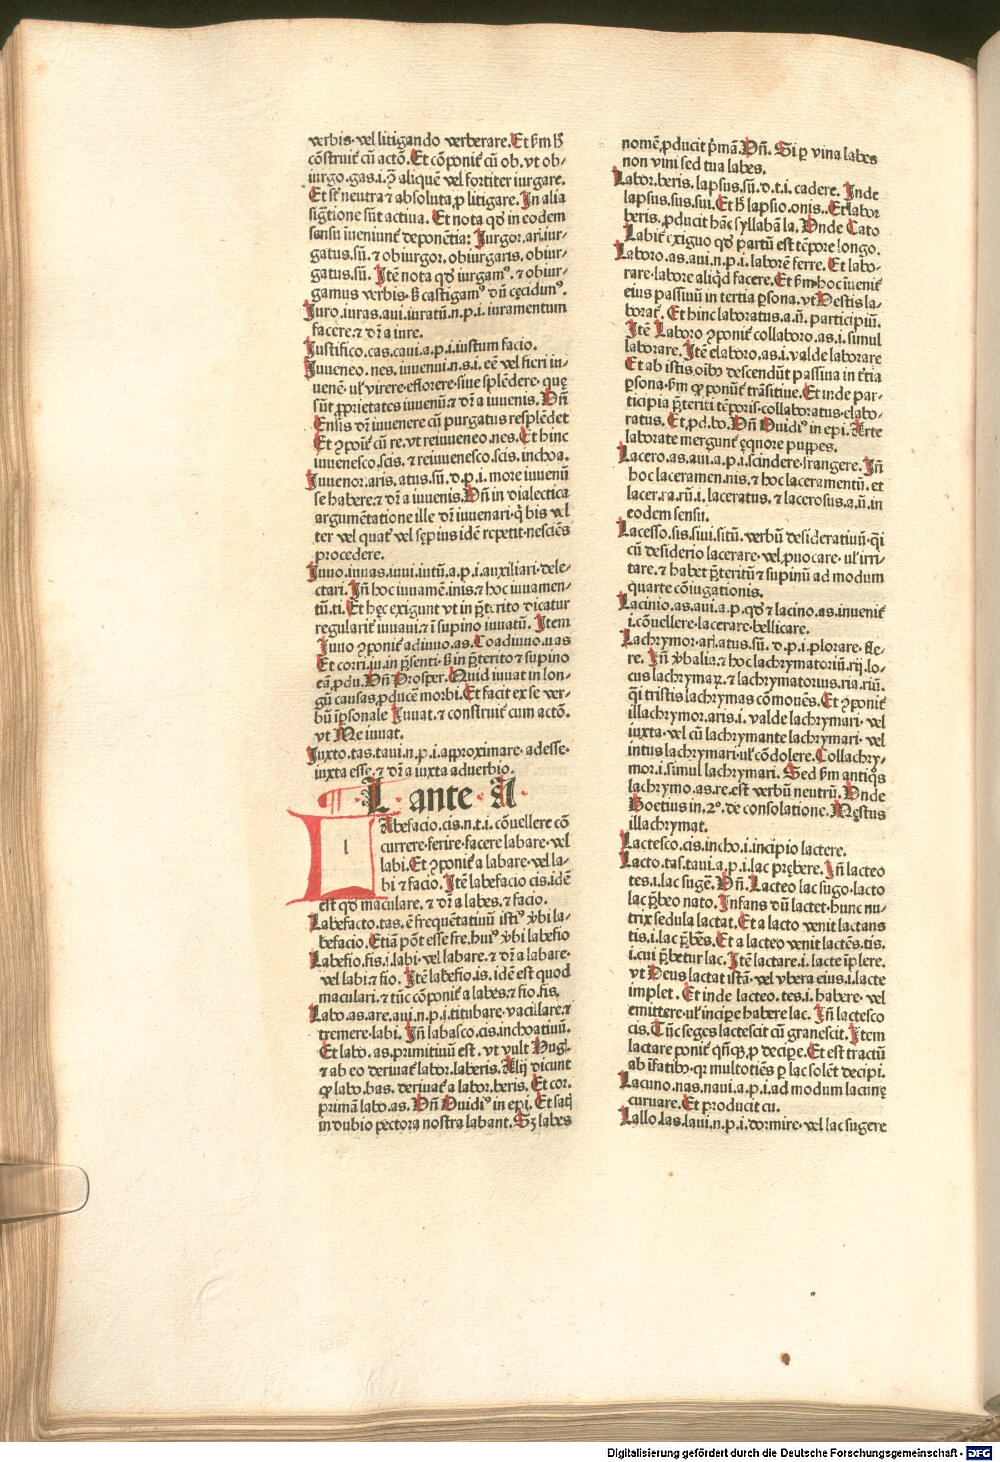 verbis· vel litigando verberare. Et ẜm hͦ
cōstruit᷑ cū actō. Et cōponit᷑ cū ob. vt ob⸗
iurgo. gas. i. ꝯͣ aliquē vel fortiter iurgare.
Et sic̄ neutra ⁊ absoluta, ꝓ litigare. In alia
sigͣtione sūt actiua. Et nota qͦꝺ in eodem
sensu īueniunt᷑ deponētia: Iurgor. ari. iur⸗
gatus. sū. ⁊ obiurgor. obiurgaris. obiur⸗
gatus. sū. Itē nota qͦꝺ iurgamꝰ. ⁊ obiur⸗
gamus verbis. ẞ castigamꝰ dū cęcidimꝰ.
Iuro. iuras. aui. iuratū. n. p. i. iuramentum
facere. ⁊ dr̄ a iure.
Iustifico. cas. caui. a. p. i. iustum facio.
Iuueneo. nes. iuuenui. n. s. i. eē vel fieri iu⸗
uenē· ul᷑ virere· eflorere· siue splēdere· quę
sūt ꝓprietates iuuenū. ⁊ dr̄ a iuuenis. Vn̄
Enſis dr̄ iuuenere cū purgatus resplēdet
Et ꝯponit᷑ cū re. vt reiuueneo. nes. Et hinc
iuuenesco. scis. ⁊ reiuuenesco. scis. inchoa.
Iuuenor. aris. atus. sū. d. p. i. more iuuenū
se habere. ⁊ dr̄ a iuuenis. Vn̄ in dialectica
argumētatione ille dr̄ iuuenari· q̇ bis vel
ter vel quat᷑ vel sępius idē repetit· nesciēs
procedere.
Iuuo. iuuas. iuui. iutū. a. p. i. auxiliari· dele⸗
ctari. In̄ hoc iuuamē. inis. ⁊ hoc iuuamen⸗
tū. ti. Et hęc exigunt vt in p̄terito dicatur
regularit᷑ iuuaui. ⁊ ī supino iuuatū. Item
Iuuo ꝯponit᷑ adiuuo. as. Coadiuuo. uas
Et corri. iu. in p̄senti· ẞ in p̄terito ⁊ supino
eā, ꝓdu. Vn̄ Prosper. Quid iuuat in lon⸗
gū causas ꝓducē morbi. Et facit ex se ver⸗
bū īpsonale Iuuat. ⁊ construit᷑ cum actō.
vt Me iuuat.
Iuxto. tas. taui. n. p. i. approximare· adesse·
iuxta esse. ⁊ dr̄ a iuxta aduerbio.
¶ · L · ante · A ·
l
Abefacio. cis. n. t. i. cōuellere cō
currere· ferire· facere labare· vel
labi. Et ꝯponit᷑ a labare· vel la⸗
bi ⁊ facio. Itē labefacio cis. idē
est qͦꝺ maculare. ⁊ dr̄ a labes. ⁊ facio.
Labefacto. tas. ē frequētatiuū istiꝰ v̄bi la⸗
befacio. Etiā pōt esse fre. huiꝰ v̄bi labefio
Labefio. fis. i. labi· vel labare. ⁊ dr̄ a labare·
vel labi. ⁊ fio. Itē labefio. is. idē est quod
maculari. ⁊ tūc cōponit᷑ a labes· ⁊ fio. fis.
Labo. as. are. aui. n. p. i. titubare· vacillare. ⁊
tremere· labi. In̄ labasco. cis. inchoatiuū.
Et labo. as. primitiuū est. vt vult Hug̅.
⁊ ab eo deriuat᷑ labor. laberis. Alij dicunt
qͦ labo. bas. deriuat᷑ a labor. beris. Et cor.
primā labo. as. Vn̄ Ouidiꝰ in epi. Et satꝗ
in dubio pectora nostra labant. Sꝫ labes
nomē, ꝓducit p̄mā. Vn̄. Si ꝑ vina labes
non vini sed tua labes.
Labor. beris. lapsus. sū. d. t. i. cadere. Inde
lapsus. sus. sui. Et hͦ lapsio. onis.. Et labor
beris. ꝓducit hāc syllabā la. Vnde Cato
Labit᷑ exiguo qͦꝺ partū est tēpore longo.
Laboro. as. aui. n. p. i. laborē ferre. Et labo⸗
rare· labore aliqͥd facere. Et ẜm hoc īuenit᷑
eius passiuū in tertia ꝑsona. vt Vestis la⸗
borat᷑. Et hinc laboratus. a. ū. participiū.
Itē Laboro ꝯponit᷑ collaboro. as. i. simul
laborare. Itē elaboro. as. i. valde laborare
Et ab istis oibꝰ descendūt passiua in t᷑tia
ꝑsona. ẜm ꝙ ponūt᷑ trāsitiue. Et inde par⸗
ticipia p̄teriti tēporis· collaboratus· elabo⸗
ratus. Et, ꝓd. bo. Vn̄ Ouidiꝰ in epi. Arte
laborate mergunt᷑ ęquore puppes.
Lacero. as. aui. a. p. i. scindere· frangere. In̄
hoc laceramen. nis. ⁊ hoc laceramentū. et
lacer. ra. rū. i. laceratus. ⁊ lacerosus. a. ū. in
eodem sensu.
Lacesso. sis. siui. situ̅. verbū desideratiuū· qͥi
cū desiderio lacerare· vel, ꝓuocare· ul᷑ irri⸗
tare. ⁊ habet p̄teritū ⁊ supinū ad modum
quarte cōiugationis.
Lacinio. as. aui. a. p. qͦꝺ ⁊ lacino. as. inuenit᷑
i. cōuellere· lacerare· bellicare.
Lachrymor. ari. atus. sū. d. p. i. plorare· fle⸗
re. In̄ v̄balia. ⁊ hoc lachrymatoriū. rij. lo⸗
cus lachrymaꝝ. ⁊ lachrymatorius. ria. riū.
qͥi tristis lachrymas cōmouēs. Et ꝯponit᷑
illachrymor. aris. i. valde lachrymari· vel
iuxta· vel cū lachrymante lachrymari· vel
intus lachrymari· ul᷑ cōdolere. Collachry⸗
mor. i. simul lachrymari. Sed ẜm antiqͦs
lachrymo. as. re. est verbū neutrū. Vnde
Boetius in. 2°. de consolatione. Męstus
illachrymat.
Lactesco. cis. incho. i. incipio lactere.
Lacto. tas. taui. a. p. i. lac prębere. In̄ lacteo
tes. i. lac sugē. Vn̄. Lacteo lac sugo· lacto
lac p̄beo nato. Infans dū lactet· hunc nu⸗
trix sedula lactat. Et a lacto venit lactans
tis. i. lac p̄bēs. Et a lacteo venit lactēs. tis.
i. cui p̄betur lac. Itē lactare. i. lacte īplere.
vt Deus lactat istā· vel vbera eius. i. lacte
implet. Et inde lacteo. tes. i. habere· vel
emittere· ul᷑ incipe habere lac. In̄ lactesco
cis. Tūc seges lactescit cū granescit. Item
lactare ponit᷑ qn̄qꝫ, ꝓ decipe. Et est tractū
ab īfātibꝰ· qꝛ multotiēs ꝑ lac solēt decipi.
Lacuno. nas. naui. a. p. i. ad modum lacunę
curuare. Et producit cu.
Lallo. las. laui. n. p. i. dormire· vel lac sugere
Digitalisierung gefördert durch die Deutsche Forschungsgemeinschaft - DFG